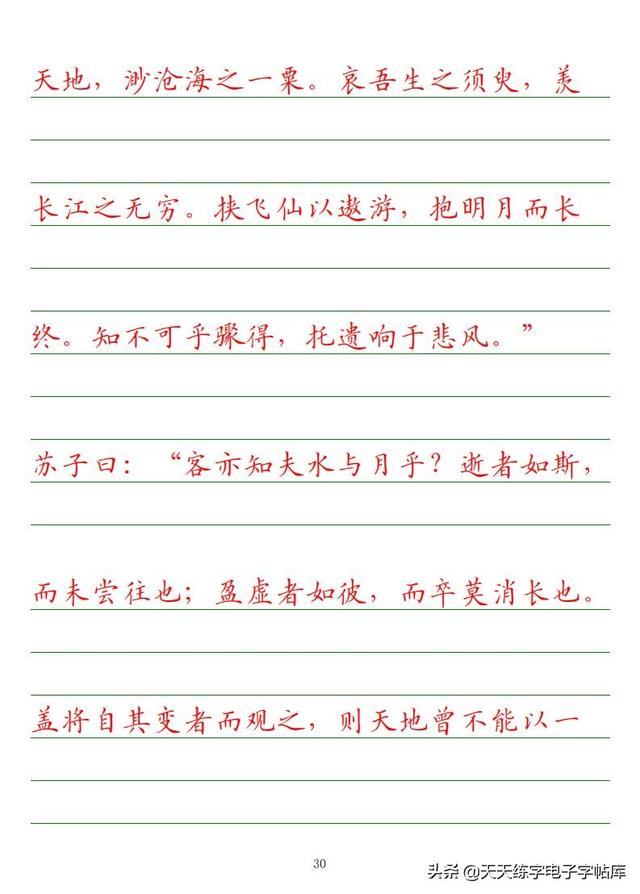 天地，渺沧海之一粟。哀吾生之须臾，羡
长江之无穷。挟飞仙以遨游，抱明月而长
终。知不可乎骤得，托遗响于悲风。”
苏子曰：“客亦知夫水与月乎？逝者如斯，
而未尝往也；盈虚者如彼，而卒莫消长也。
盖将自其变者而观之，则天地曾不能以一
30
头条 @天天练字电子字帖库